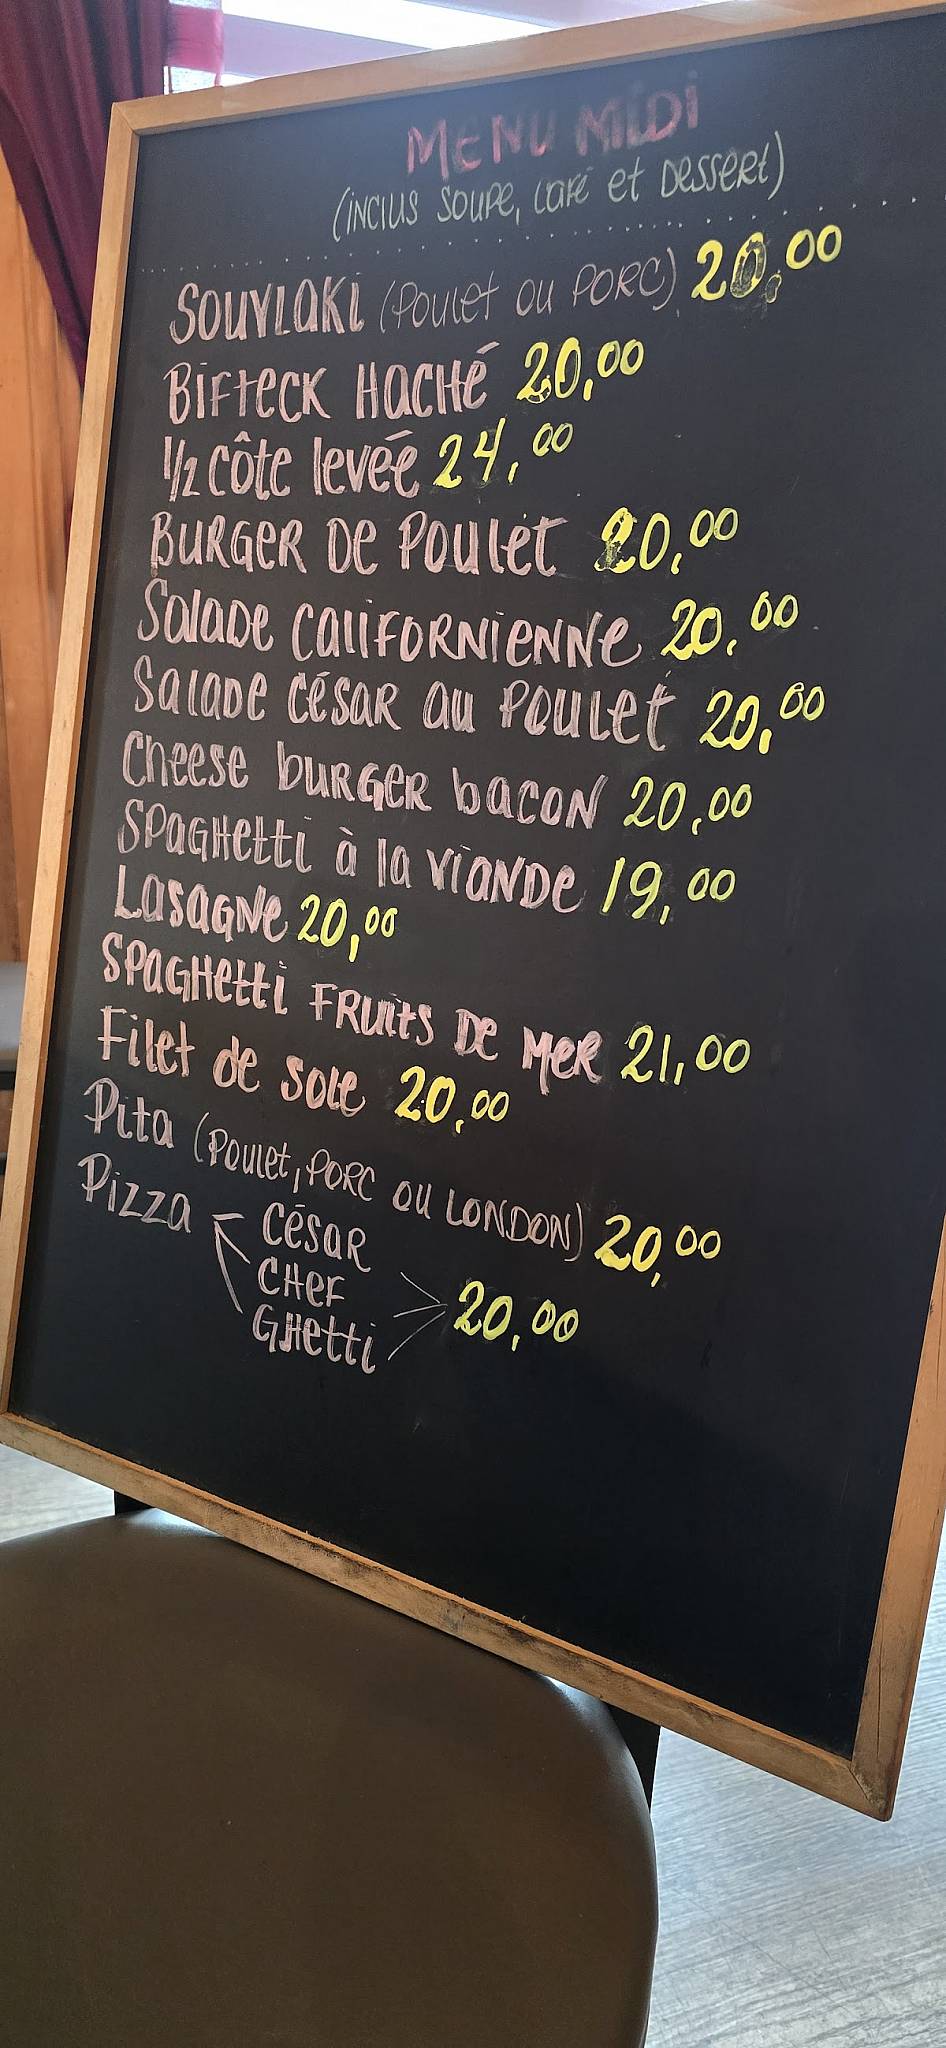 MENU MIDI
(INCLUS SOUPE, CAFÉ ET DESSERT)
SOUVLAKI (POULET OU PORC) 20,00
BIFTECK HACHÉ 20,00
1/2 CÔTE LEVÉE 24,00
BURGER DE POULET 20,00
SALADE CALIFORNIENNE 20,00
SALADE CÉSAR AU POULET 20,00
CHEESE BURGER BACON 20,00
SPAGHETTI À LA VIANDE 19,00
LASAGNE 20,00
SPAGHETTI FRUITS DE MER 21,00
FILET DE SOLE 20,00
PITA (POULET, PORC OU LONDON) 20,00
PIZZA CÉSAR
CHEF 20,00
GHETTI